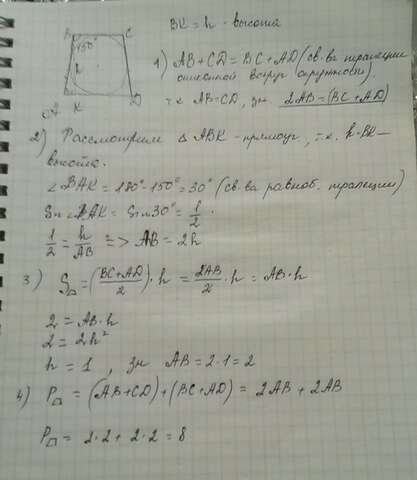 BK = h - высота
B
150°
C
A
K
D
1) AB + CD = BC + AD (св-ва трапеции
описанной вокруг окружности)
т.к. AB = CD, зн 2AB = (BC + AD)
2) Рассмотрим Δ ABK - прямоуг, т.к. h-BK-
высота.
∠BAK = 180° - 150° = 30° (св-ва равноб. трапеции)
Sin ∠BAK = Sin 30° = 1/2.
1/2 = h/AB => AB = 2h
3) S = (BC + AD)/2 · h = 2AB/2 · h = AB · h
2 = AB · h
2 = 2h²
h = 1, зн AB = 2 · 1 = 2
4) P = (AB + CD) + (BC + AD) = 2AB + 2AB
P = 2 · 2 + 2 · 2 = 8